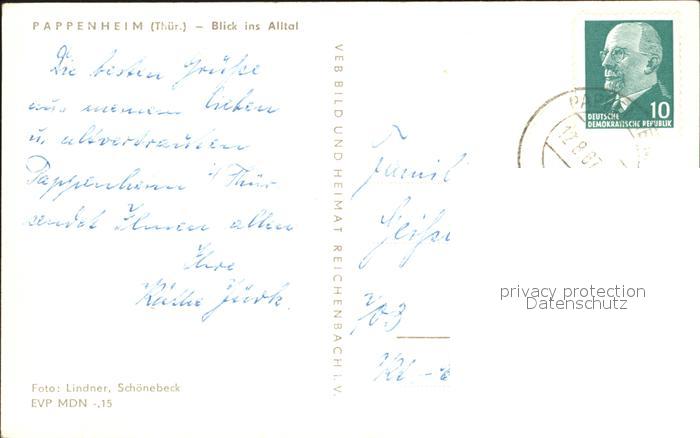 PAPPENHEIM (Thür.) – Blick ins Alltal
Die besten Grüße
aus meinem lieben
u. altvertrauten
Pappenheim i/Thür
sendet Ihnen allen
Ihre
Käthe
VEB BILD UND HEIMAT REICHENBACH I. V.
Famil
10
DEUTSCHE
DEMOKRATISCHE REPUBLIK
PAP
12.8.67
privacy protection
Datenschutz
Foto: Lindner, Schönebeck
EVP MDN -,15